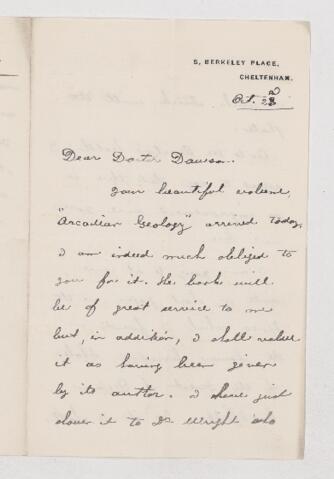 5, BERKELEY PLACE,
CHELTENHAM.
Oct. 22nd
Dear Doctor Dawson.
Your beautiful volume,
"Arcadian Geology" arrived today,
I am indeed much obliged to
you for it. The book will
be of great service to me
but, in addition, I shall value
it as having been given
by its author. I have just
shown it to Dr Wright who